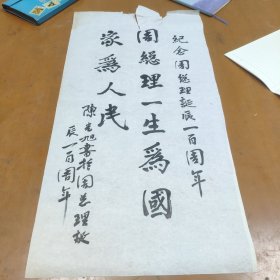 紀念周總理誕辰一百周年
周總理一生為國
家爲人民
陳先旭書於周总理故
辰一百周年